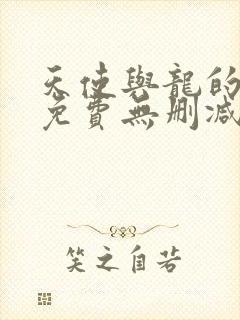 天使與龍的
免費無刪減
笑之自若